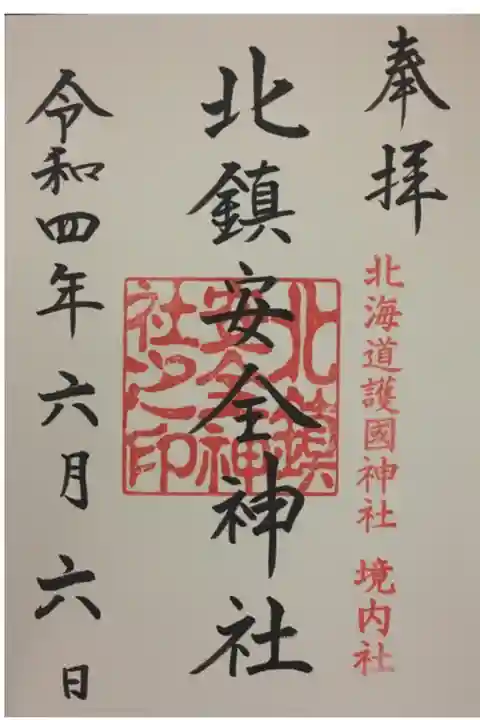 奉拝
北海道護國神社 境内社
北鎮安全神社
北鎮
安全神
社之印
令和四年六月六日